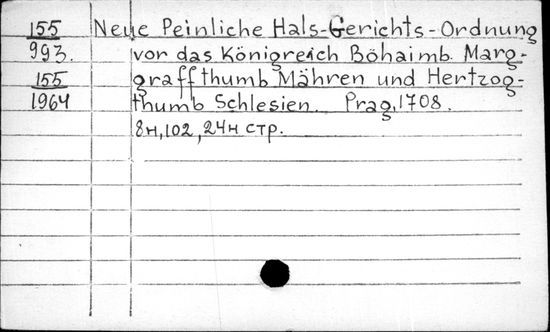 155 Neue Peinliche Hals-Gerichts-Ordnung
993. vor das Königreich Böhaimb. Marg-
155 graffthumb Mähren und Hertzog-
1964 thumb Schlesien. Prag, 1708.
8н, 102, 24н стр.